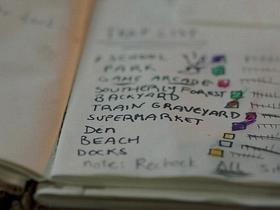 TRAP LIST
SCHOOL
PARK
GAME ARCADE
SOUTHERLY FOREST
BACKYARD
TRAIN GRAVEYARD
SUPERMARKET
Den
BEACH
DOCKS
note: Recheck ALL